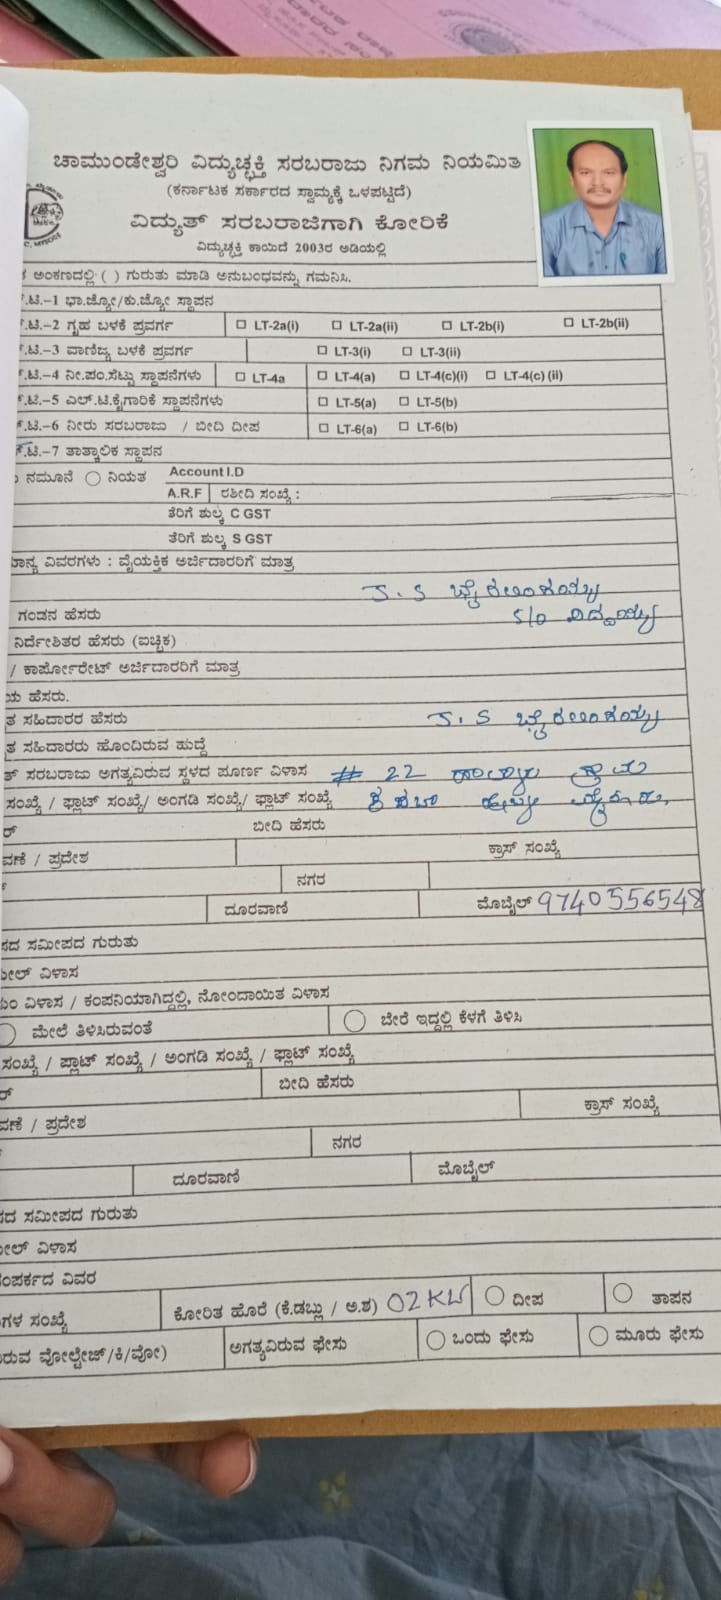 ಚಾಮುಂಡೇಶ್ವರಿ ವಿದ್ಯುಚ್ಛಕ್ತಿ ಸರಬರಾಜು ನಿಗಮ ನಿಯಮಿತ
(ಕರ್ನಾಟಕ ಸರ್ಕಾರದ ಸ್ವಾಮ್ಯಕ್ಕೆ ಒಳಪಟ್ಟಿದೆ)
ವಿದ್ಯುತ್ ಸರಬರಾಜಿಗಾಗಿ ಕೋರಿಕೆ
ವಿದ್ಯುಚ್ಛಕ್ತಿ ಕಾಯಿದೆ 2003ರ ಅಡಿಯಲ್ಲಿ
ಅಂಕಣದಲ್ಲಿ ( ) ಗುರುತು ಮಾಡಿ ಅನುಬಂಧವನ್ನು ಗಮನಿಸಿ.
.ಟಿ.-1 ಭಾ.ಜ್ಯೋ/ಕು.ಜ್ಯೋ ಸ್ಥಾಪನ
.ಟಿ.-2 ಗೃಹ ಬಳಕೆ ಪ್ರವರ್ಗ LT-2a(i) LT-2a(ii) LT-2b(i) LT-2b(ii)
.ಟಿ.-3 ವಾಣಿಜ್ಯ ಬಳಕೆ ಪ್ರವರ್ಗ LT-3(i) LT-3(ii)
.ಟಿ.-4 ನೀ.ಪಂ.ಸೆಟ್ಟು ಸ್ಥಾಪನೆಗಳು LT-4a LT-4(a) LT-4(c)(i) LT-4(c) (ii)
.ಟಿ.-5 ಎಲ್.ಟಿ.ಕೈಗಾರಿಕೆ ಸ್ಥಾಪನೆಗಳು LT-5(a) LT-5(b)
.ಟಿ.-6 ನೀರು ಸರಬರಾಜು / ಬೀದಿ ದೀಪ LT-6(a) LT-6(b)
.ಟಿ.-7 ತಾತ್ಕಾಲಿಕ ಸ್ಥಾಪನ
ನಮೂನೆ ನಿಯತ Account I.D
A.R.F ರಶೀದಿ ಸಂಖ್ಯೆ :
ತೆರಿಗೆ ಶುಲ್ಕ C GST
ತೆರಿಗೆ ಶುಲ್ಕ S GST
ವಿವರಗಳು : ವೈಯಕ್ತಿಕ ಅರ್ಜಿದಾರರಿಗೆ ಮಾತ್ರ
J. S
ಗಂಡನ ಹೆಸರು S/o
ನಿರ್ದೇಶಿತರ ಹೆಸರು (ಐಚ್ಛಿಕ)
/ ಕಾರ್ಪೋರೇಟ್ ಅರ್ಜಿದಾರರಿಗೆ ಮಾತ್ರ
ಯ ಹೆಸರು.
ತ ಸಹಿದಾರರ ಹೆಸರು J. S
ತ ಸಹಿದಾರರು ಹೊಂದಿರುವ ಹುದ್ದೆ
ತ್ ಸರಬರಾಜು ಅಗತ್ಯವಿರುವ ಸ್ಥಳದ ಪೂರ್ಣ ವಿಳಾಸ # 22
ಸಂಖ್ಯೆ / ಫ್ಲಾಟ್ ಸಂಖ್ಯೆ/ ಅಂಗಡಿ ಸಂಖ್ಯೆ/ ಫ್ಲಾಟ್ ಸಂಖ್ಯೆ ಕಸಬಾ
ರ್ ಬೀದಿ ಹೆಸರು
ವಣೆ / ಪ್ರದೇಶ ಕ್ರಾಸ್ ಸಂಖ್ಯೆ
ನಗರ
ದೂರವಾಣಿ ಮೊಬೈಲ್ 9740556548
ಸದ ಸಮೀಪದ ಗುರುತು
ಮೇಲ್ ವಿಳಾಸ
ವಿಳಾಸ / ಕಂಪನಿಯಾಗಿದ್ದಲ್ಲಿ, ನೋಂದಾಯಿತ ವಿಳಾಸ
ಮೇಲೆ ತಿಳಿಸಿರುವಂತೆ ಬೇರೆ ಇದ್ದಲ್ಲಿ ಕೆಳಗೆ ತಿಳಿಸಿ
ಸಂಖ್ಯೆ / ಪ್ಲಾಟ್ ಸಂಖ್ಯೆ / ಅಂಗಡಿ ಸಂಖ್ಯೆ / ಫ್ಲಾಟ್ ಸಂಖ್ಯೆ
ರ್ ಬೀದಿ ಹೆಸರು
ವಣೆ / ಪ್ರದೇಶ ಕ್ರಾಸ್ ಸಂಖ್ಯೆ
ನಗರ
ದೂರವಾಣಿ ಮೊಬೈಲ್
ಸದ ಸಮೀಪದ ಗುರುತು
ಮೇಲ್ ವಿಳಾಸ
ಸಂಪರ್ಕದ ವಿವರ
ಗಳ ಸಂಖ್ಯೆ ಕೋರಿತ ಹೊರೆ (ಕೆ.ಡಬ್ಲು / ಅ.ಶ) 02 KW ದೀಪ ತಾಪನ
ರುವ ವೋಲ್ಟೇಜ್/ಕಿ/ವೋ) ಅಗತ್ಯವಿರುವ ಫೇಸು ಒಂದು ಫೇಸು ಮೂರು ಫೇಸು